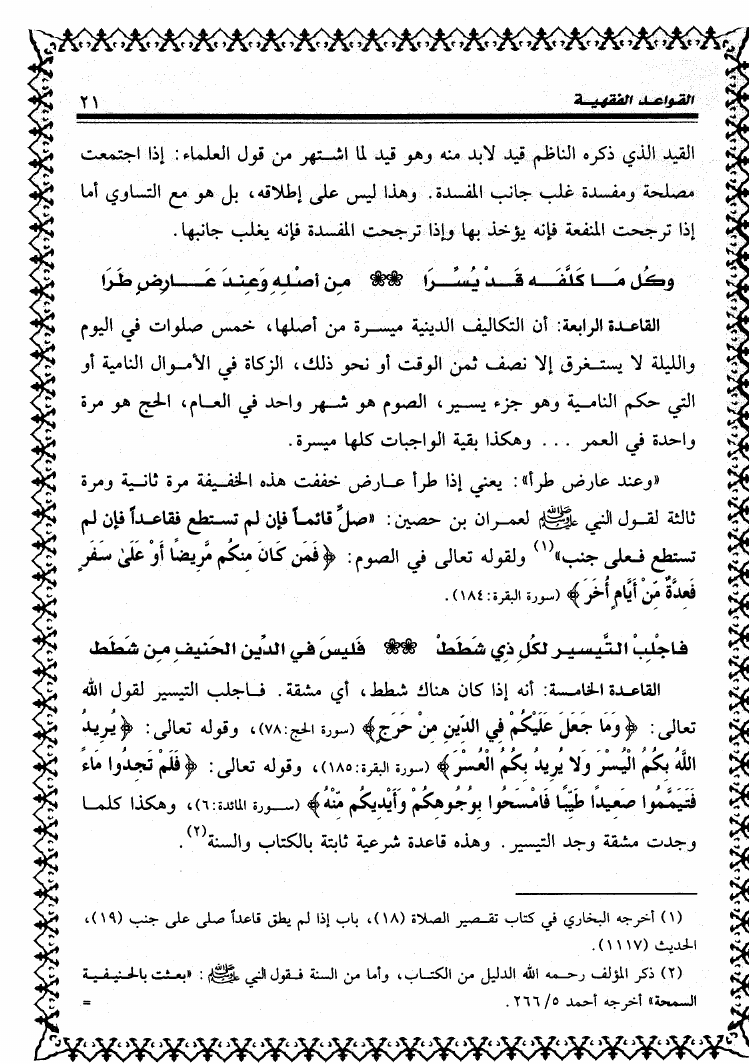 القواعد الفقهية ٢١
القيد الذي ذكره الناظم قيد لابد منه وهو قيد لما اشتهر من قول العلماء: إذا اجتمعت
مصلحة ومفسدة غلب جانب المفسدة. وهذا ليس على إطلاقه، بل هو مع التساوي أما
إذا ترجحت المنفعة فإنه يؤخذ بها وإذا ترجحت المفسدة فإنه يغلب جانبها.
وكُل مَا كَلَّفَه قَدْ يُسِّرَا من أصْلِهِ وَعِندَ عَارِضٍ طَرَا
القاعدة الرابعة: أن التكاليف الدينية ميسرة من أصلها، خمس صلوات في اليوم
والليلة لا يستغرق إلا نصف ثمن الوقت أو نحو ذلك، الزكاة في الأموال النامية أو
التي حكم النامية وهو جزء يسير، الصوم هو شهر واحد في العام، الحج هو مرة
واحدة في العمر ... وهكذا بقية الواجبات كلها ميسرة.
«وعند عارض طرأ»: يعني إذا طرأ عارض خففت هذه الخفيفة مرة ثانية ومرة
ثالثة لقول النبي ﷺ لعمران بن حصين: «صلِّ قائماً فإن لم تستطع فقاعداً فإن لم
تستطع فعلى جنب»(١) ولقوله تعالى في الصوم: ﴿فَمَن كَانَ مِنكُم مَّرِيضًا أَوْ عَلَىٰ سَفَرٍ
فَعِدَّةٌ مِّنْ أَيَّامٍ أُخَرَ﴾ (سورة البقرة:١٨٤).
فاجْلِبْ التَّيسير لكُلِ ذي شَطَطْ فَليسَ في الدِّين الحَنيفِ مِن شَطَط
القاعدة الخامسة: أنه إذا كان هناك شطط، أي مشقة. فاجلب التيسير لقول الله
تعالى: ﴿وَمَا جَعَلَ عَلَيْكُمْ فِي الدِّينِ مِنْ حَرَجٍ﴾ (سورة الحج:٧٨)، وقوله تعالى: ﴿يُرِيدُ
اللَّهُ بِكُمُ الْيُسْرَ وَلَا يُرِيدُ بِكُمُ الْعُسْرَ﴾ (سورة البقرة:١٨٥)، وقوله تعالى: ﴿فَلَمْ تَجِدُوا مَاءً
فَتَيَمَّمُوا صَعِيدًا طَيِّبًا فَامْسَحُوا بِوُجُوهِكُمْ وَأَيْدِيكُم مِّنْهُ﴾ (سورة المائدة:٦)، وهكذا كلما
وجدت مشقة وجد التيسير. وهذه قاعدة شرعية ثابتة بالكتاب والسنة(٢).
(١) أخرجه البخاري في كتاب تقصير الصلاة (١٨)، باب إذا لم يطق قاعداً صلى على جنب (١٩)،
الحديث (١١١٧).
(٢) ذكر المؤلف رحمه الله الدليل من الكتاب، وأما من السنة فقول النبي ﷺ: «بعثت بالحنيفية
السمحة» أخرجه أحمد ٥/٢٦٦. =